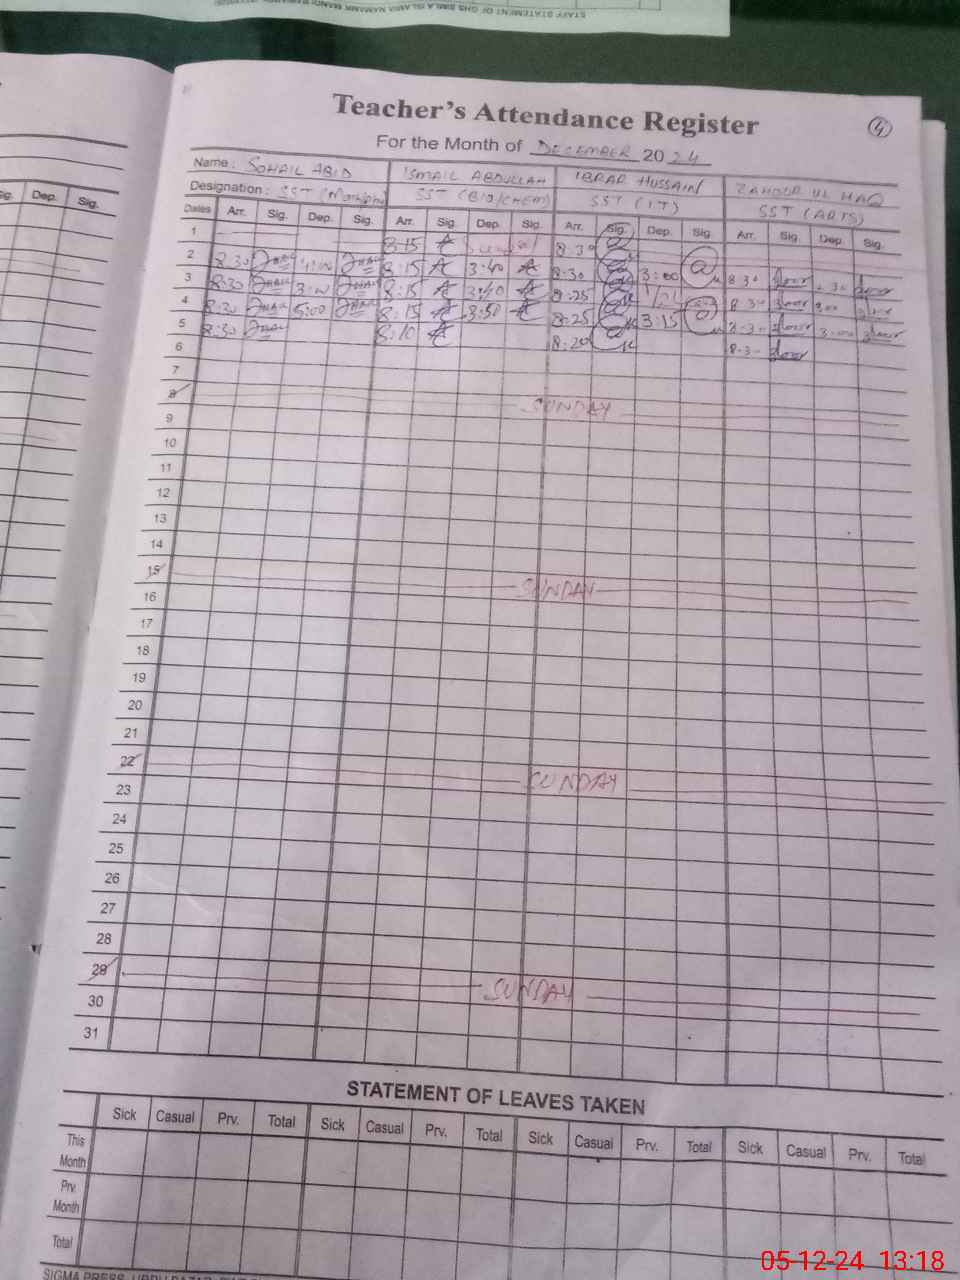 STAFF STATEMENT OF GHS
Teacher's Attendance Register
4
For the Month of DECEMBER 2024
Name : SOHAIL ABID ISMAIL ABDULLAH IBRAR HUSSAIN ZAHOOR UL HAQ
Designation : SST SST (BIO/CHEM) SST (I.T) SST (ARTS)
Sig. Dep. Sig.
Dates Arr. Sig. Dep. Sig. Arr. Sig. Dep. Sig. Arr. Sig. Dep. Sig. Arr. Sig. Dep. Sig.
1 Sunday
2 8:30 4:00 8:15 3:40 8:30 3:00 8:30
3 8:30 3:00 8:15 3:40 8:25 8:30
4 8:30 5:00 8:15 3:50 8:25 3:15 8:30 3:00
5 8:30 8:10 8:20 8:30
6
7
8 SUNDAY
9
10
11
12
13
14
15 SUNDAY
16
17
18
19
20
21
22 SUNDAY
23
24
25
26
27
28
29 SUNDAY
30
31
STATEMENT OF LEAVES TAKEN
Sick Casual Prv. Total Sick Casual Prv. Total Sick Casual Prv. Total Sick Casual Prv. Total
This Month
Prv. Month
Total
SIGMA PRESS, URDU BAZAR,
05-12-24 13:18